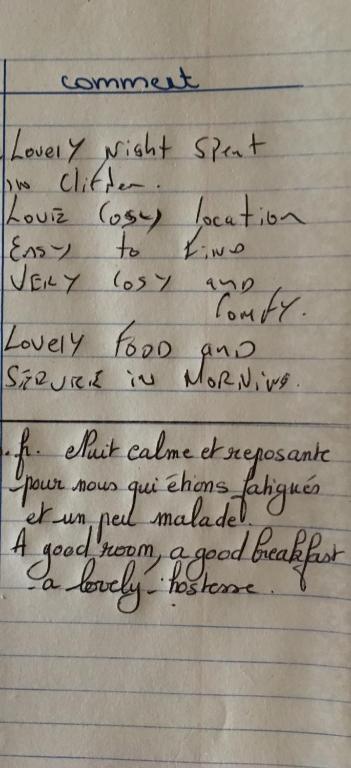 comment
Lovely Night Spent
in Clifden.
Cosy location
Easy to Find
VERY Cosy and
Comfy.
Lovely FOOD and
in MORNING.
.fr. Nuit calme et reposante
pour nous qui étions fatigués
et un peu malade.
A good room, a good breakfast
a lovely hostesse.